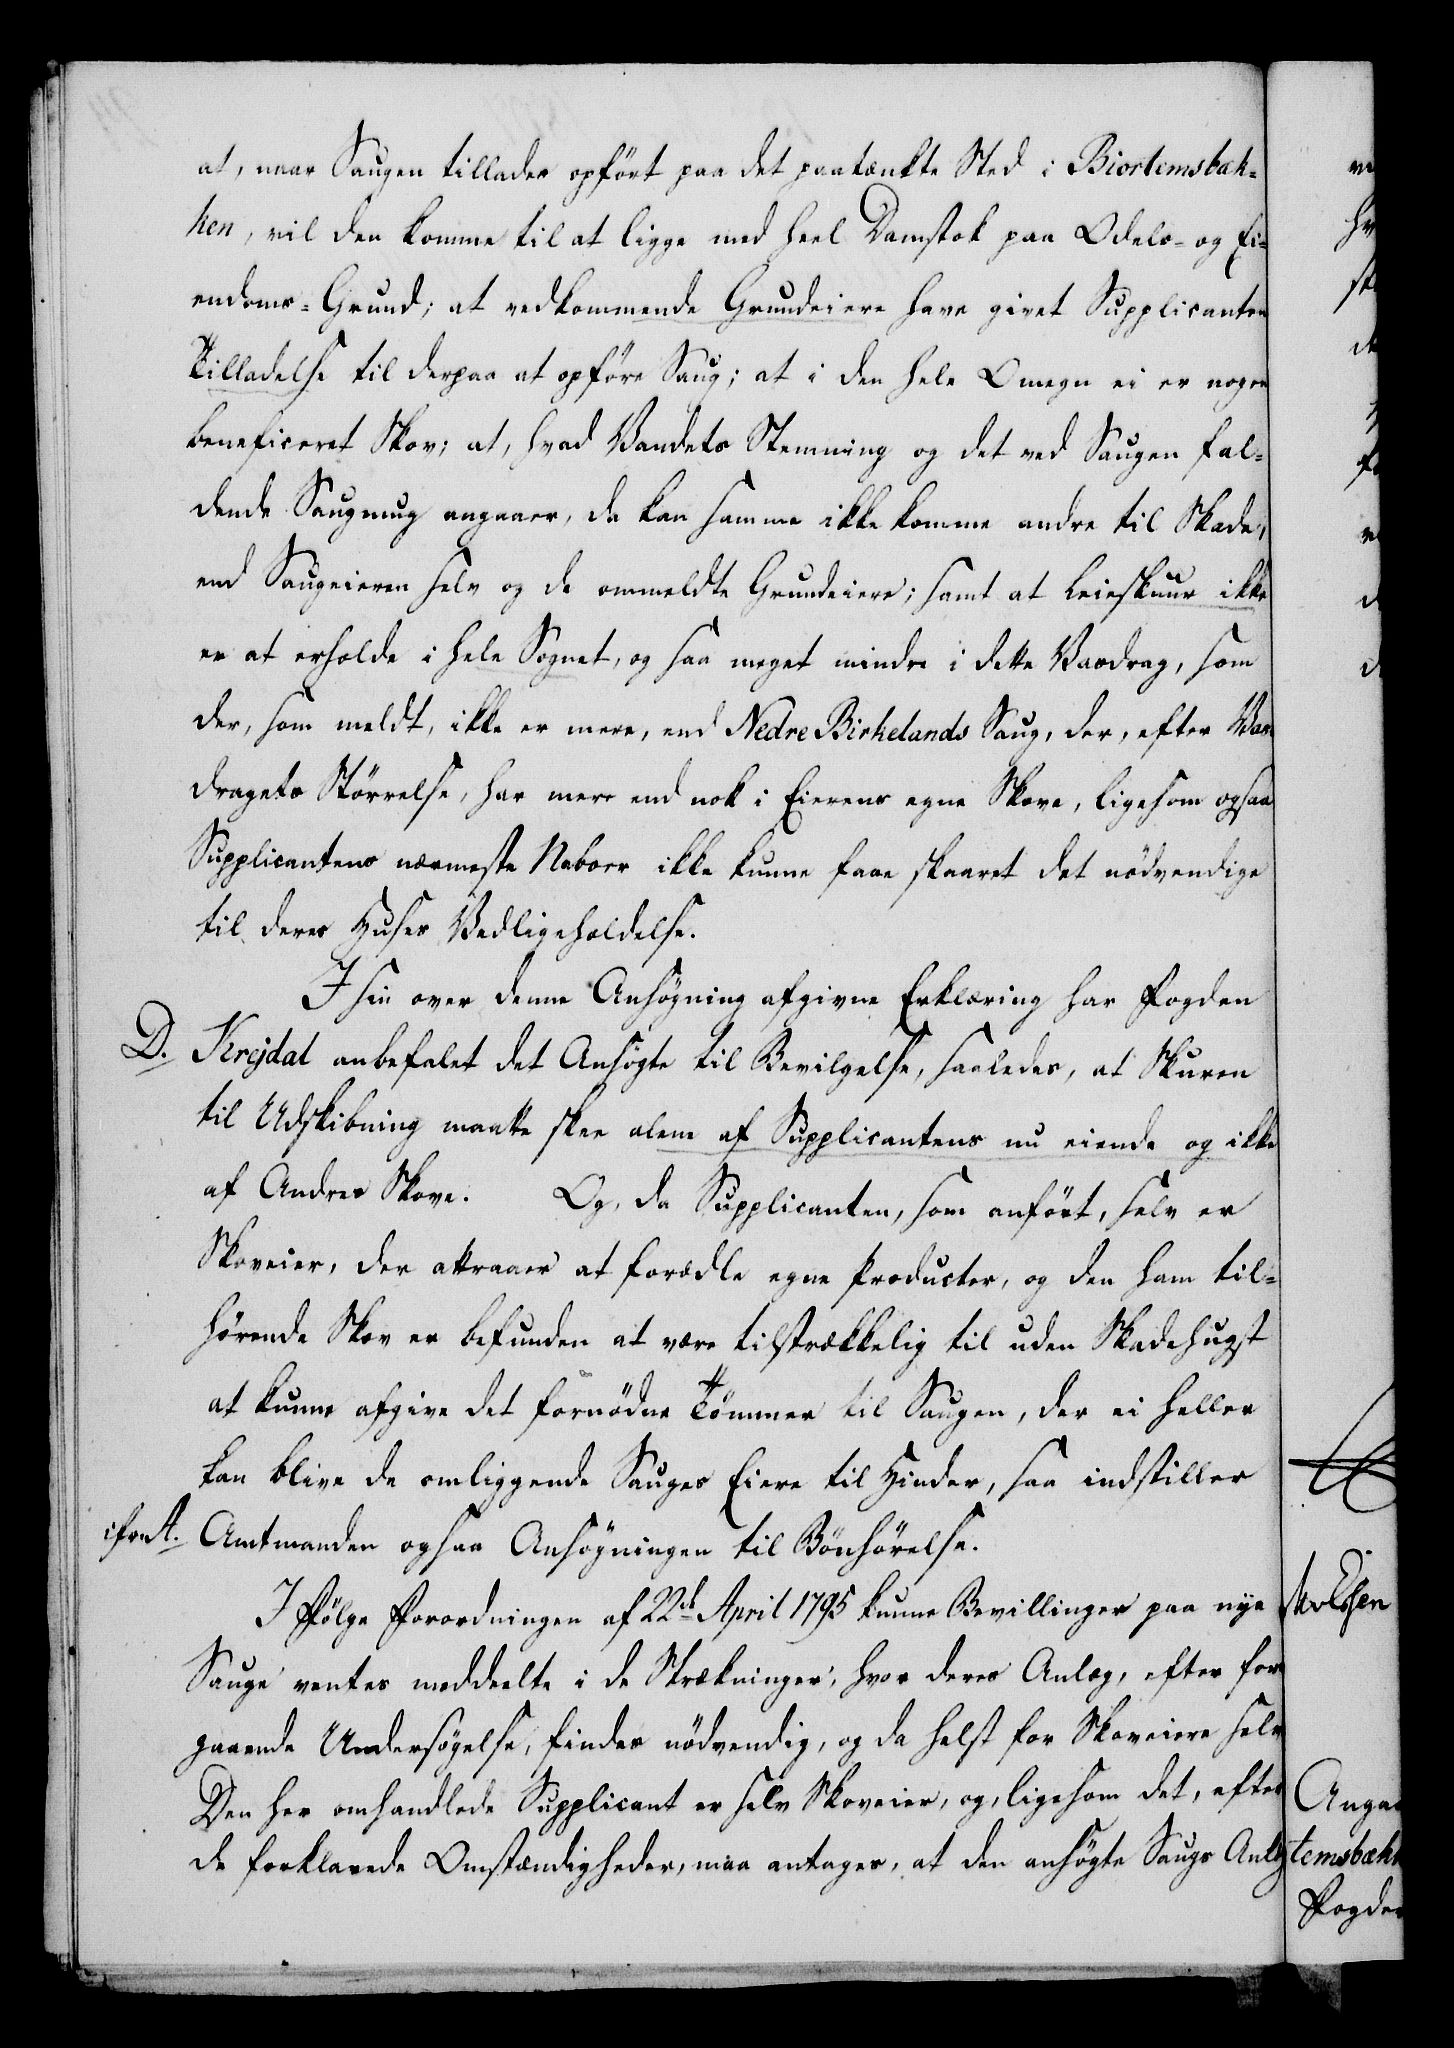 at, naar Saugen tillades opført paa det paatænkte Sted i Biortemsbæk-
ken, vil den komme til at ligge med heel Damstok paa Odels- og Ei-
endoms-Grund; at vedkommende Grundeiere have givet Supplicanten
Tilladelse til derpaa at opføre Saug; at i den hele Omegn ei er nogen
beneficeret Skov; at, hvad Vandets Stemning og det ved Saugen fal-
dende Saugmug angaaer, da kan samme ikke komme andre til Skade,
end Saugeieren selv og de ommeldte Grundeiere; samt at Leieskuur ikke
er at erholde i hele Sognet, og saa meget mindre i dette Vasdrag, som
der, som meldt, ikke er mere, end Nedre Birkelands Saug, der, efter Vas-
dragets Størrelse, har mere end nok i Eierens egne Skove, ligesom ogsaa
Supplicantens nærmeste Naboer ikke kunne faae skaaret det nødvendige
til deres Huses Vedligeholdelse.
I sin over denne Ansøgning afgivne Erklæring har Fogden
D. Krejdal anbefalet det Ansøgte til Bevilgelse, saaledes, at Skuren
til Udskibning maatte skee alene af Supplicantens nu eiende og ikke
af Andres Skove. Og, da Supplicanten, som anført, selv er
Skoveier, der attraaer at forædle egne Producter, og den ham til-
hørende Skov er befunden at være tilstrækkelig til uden Skadehugst
at kunne afgive det fornødne Tømmer til Saugen, der ei heller
kan blive de omliggende Sauges Eiere til Hinder, saa indstiller
cfr. A. Amtmanden ogsaa Ansøgningen til Bønhørelse.
I Følge Forordningen af 22de April 1795 kunne Bevillinger paa nye
Sauge ventes meddeelte i de Strækninger, hvor deres Anlæg, efter for-
gaaende Undersøgelse, findes nødvendig, og da helst for Skoveiere selv
Den her omhandlede Supplicant er selv Skoveier, og, ligesom det, efter
de forklarede Omstændigheder, maa antages, at den ansøgte Saugs Anlæg
Angaa
temsbækk
Fogden